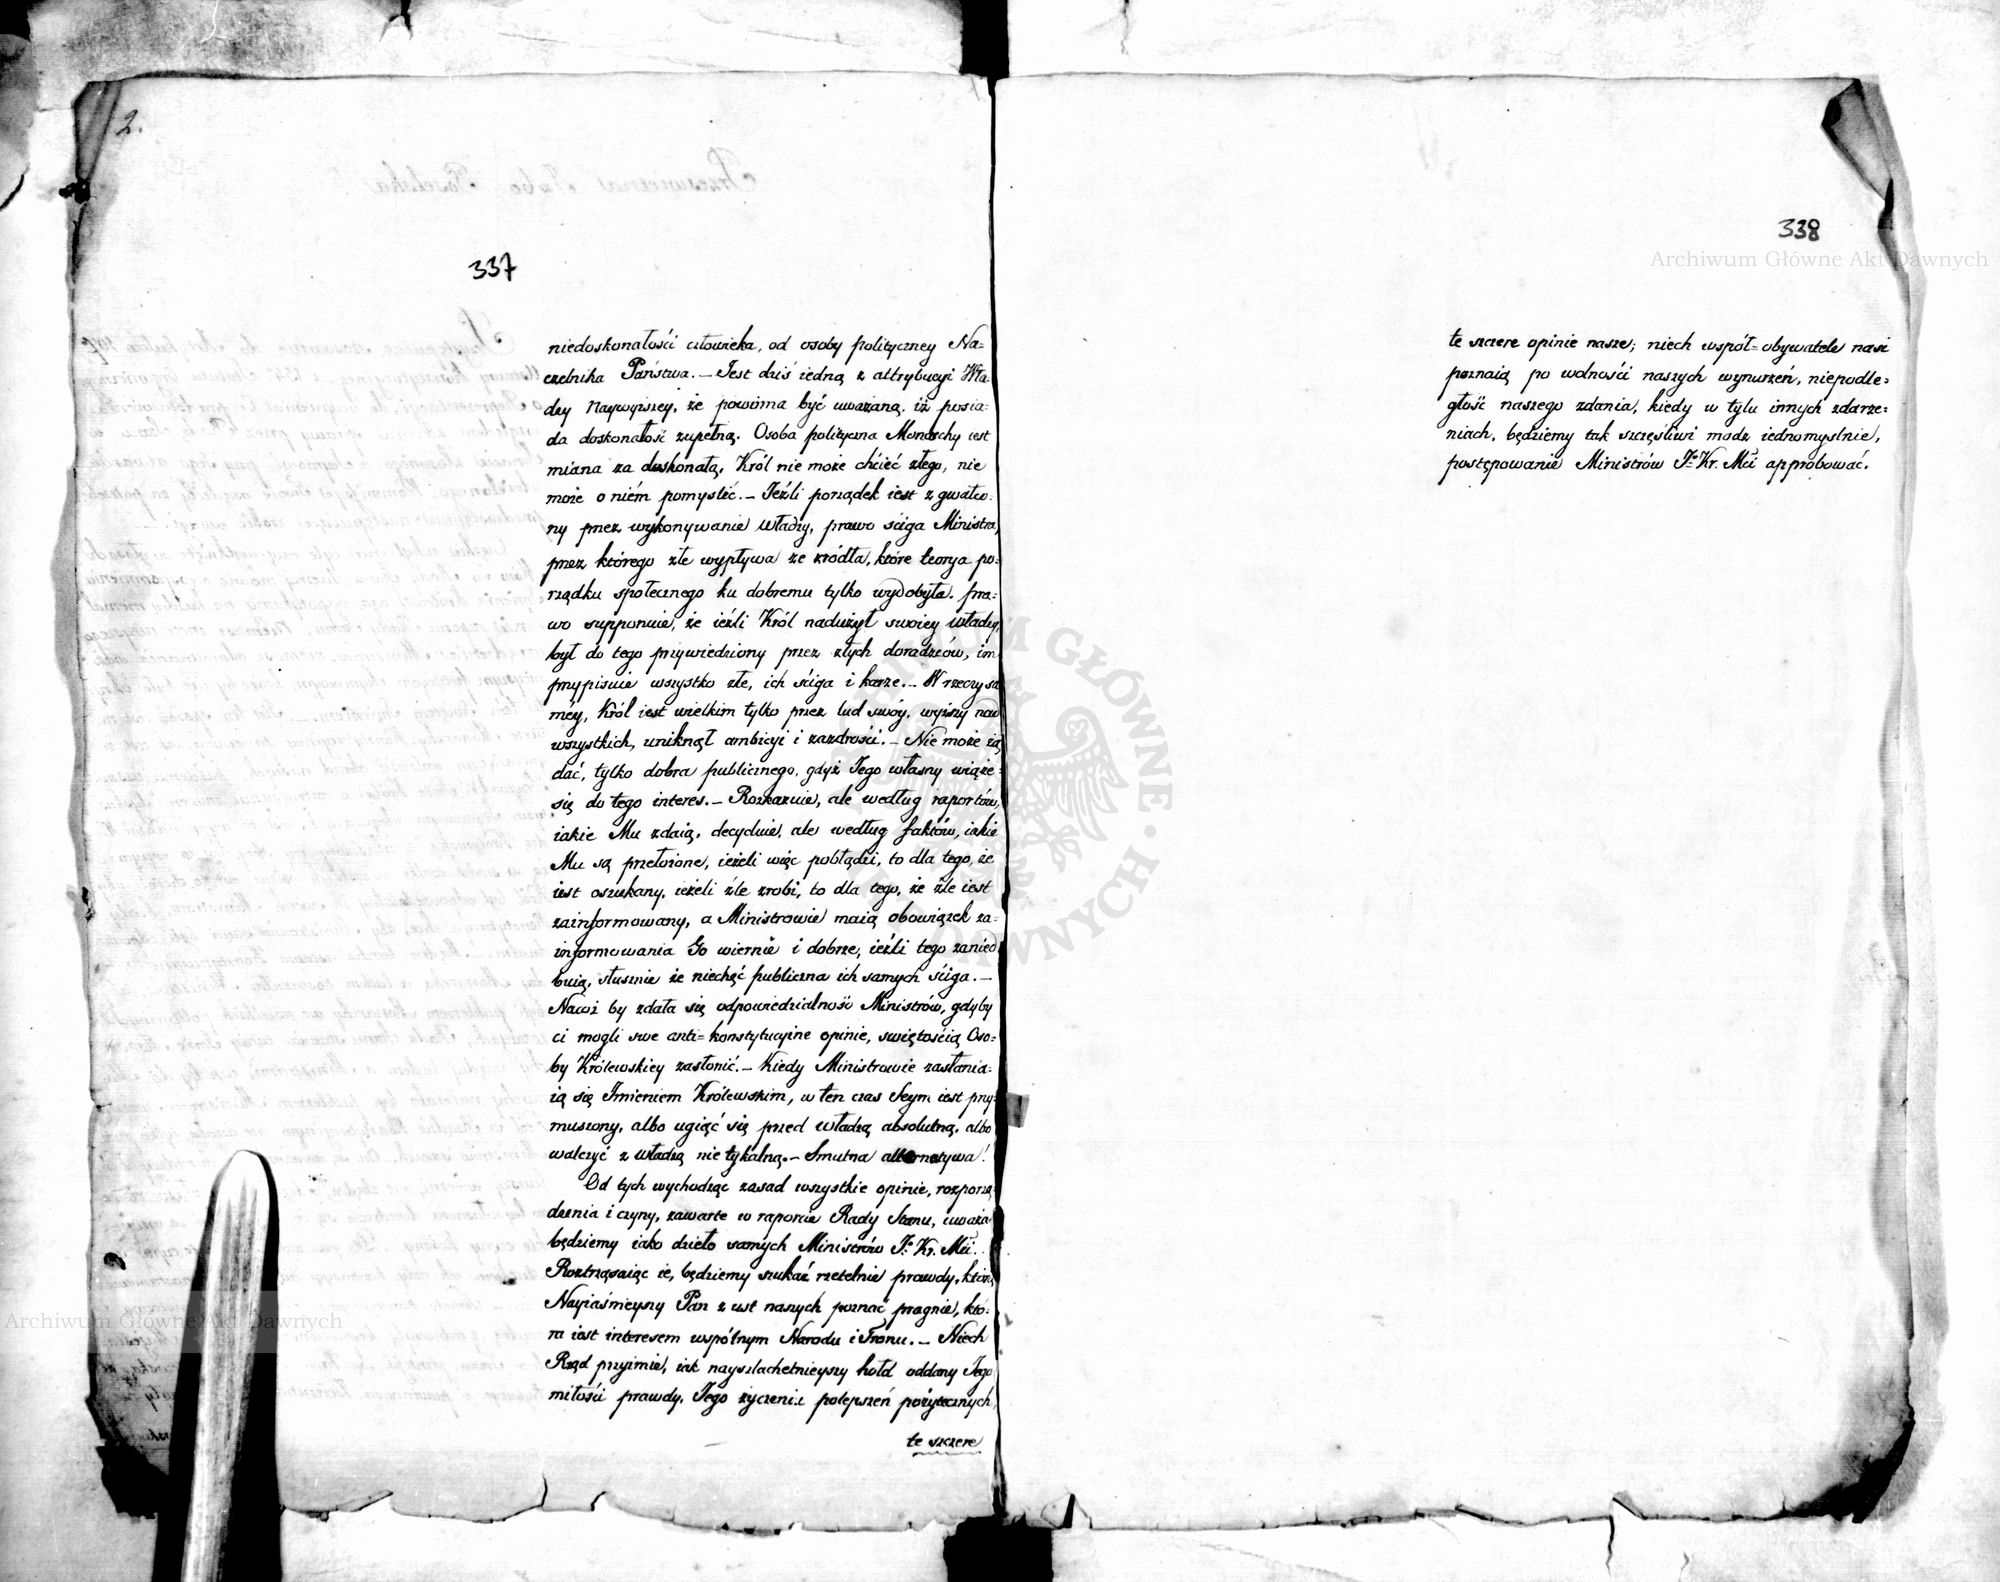 2.
337
niedoskonałości człowieka, od osoby polityczney Na=
czelnika Państwa. — Jest dziś iedną z attrybucyi Wła=
dzy Naywyższey, że powinna być uważaną, iż posia=
da doskonałość zupełną. Osoba polityczna Monarchy iest
miana za doskonałą, Król nie może chcieć złego, nie
może o niém pomyslić. — Jeżli porządek iest zgwałco=
ny przez wykonywanie władzy, prawo ściga Ministra,
przez którego złe wypływa ze zródła, które teorya po=
rządku społecznego ku dobremu tylko wydobyła. Pra=
wo supponuie, że ieżli Król nadużył swoiey władzy,
był do tego przywiedziony przez złych doradzców, im
przypisuie wszystko złe, ich ściga i karze. — W rzeczy sa
méy, Król iest wielkim tylko przez lud swóy, wyższy nad
wszystkich, uniknął ambicyi i zazdrości. — Nie może żą
dać, tylko dobra publicznego, gdyż Jego własny wiąże
się do tego interes. — Rozkazuie, ale według raportów,
iakie Mu zdaią, decyduie, ale według faktów, iakie
Mu są przełożone, ieżeli więc pobłądzi, to dla tego, że
iest oszukany, ieżeli źle zrobi, to dla tego, że źle iest
zainformowany, a Ministrowie maią obowiązek za=
informowania Go wiernie i dobrze, ieżli tego zanied
buią, słusznie że niechęć publiczna ich samych ściga. —
Nacóż by zdała się odpowiedzialność Ministrów, gdyby
ci mogli swe anti=konstytucyine opinie, swiętością Oso=
by Królewskiey zasłonić. — Kiedy Ministrowie zasłania=
ią się Imieniem Królewskim, w ten czas Seym iest przy=
muszony, albo ugiąć się przed władzą absolutną, albo
walczyć z władzą nietykalną. — Smutna alternatywa!
Od tych wychodząc zasad wszystkie opinie, rozporzą
dzenia i czyny, zawarte w raporcie Rady Stanu, uważa
będziemy iako dzieło samych Ministrów J. Kr. Mci.
Roztrząsaiąc ie, będziemy szukać rzetelnie prawdy, którą
Nayiaśnieyszy Pan z ust naszych poznać pragnie, któ=
ra iest interesem wspólnym Narodu i Tronu. — Niech
Rząd przyimie, iak nayszlachetnieyszy hołd oddany Jego
miłości prawdy, Jego życzeniu polepszeń pożytecznych,
te szczere
338
te szczere opinie nasze; niech współ=obywatele nasi
poznaią po wolności naszych wynurzeń, niepodle=
głość naszego zdania, kiedy w tylu innych zdarze=
niach, będziemy tak szczęśliwi módz iednomyslnie,
postępowanie Ministrów J. Kr. Mci approbować.
Archiwum Główne Akt Dawnych
Archiwum Główne Akt Dawnych